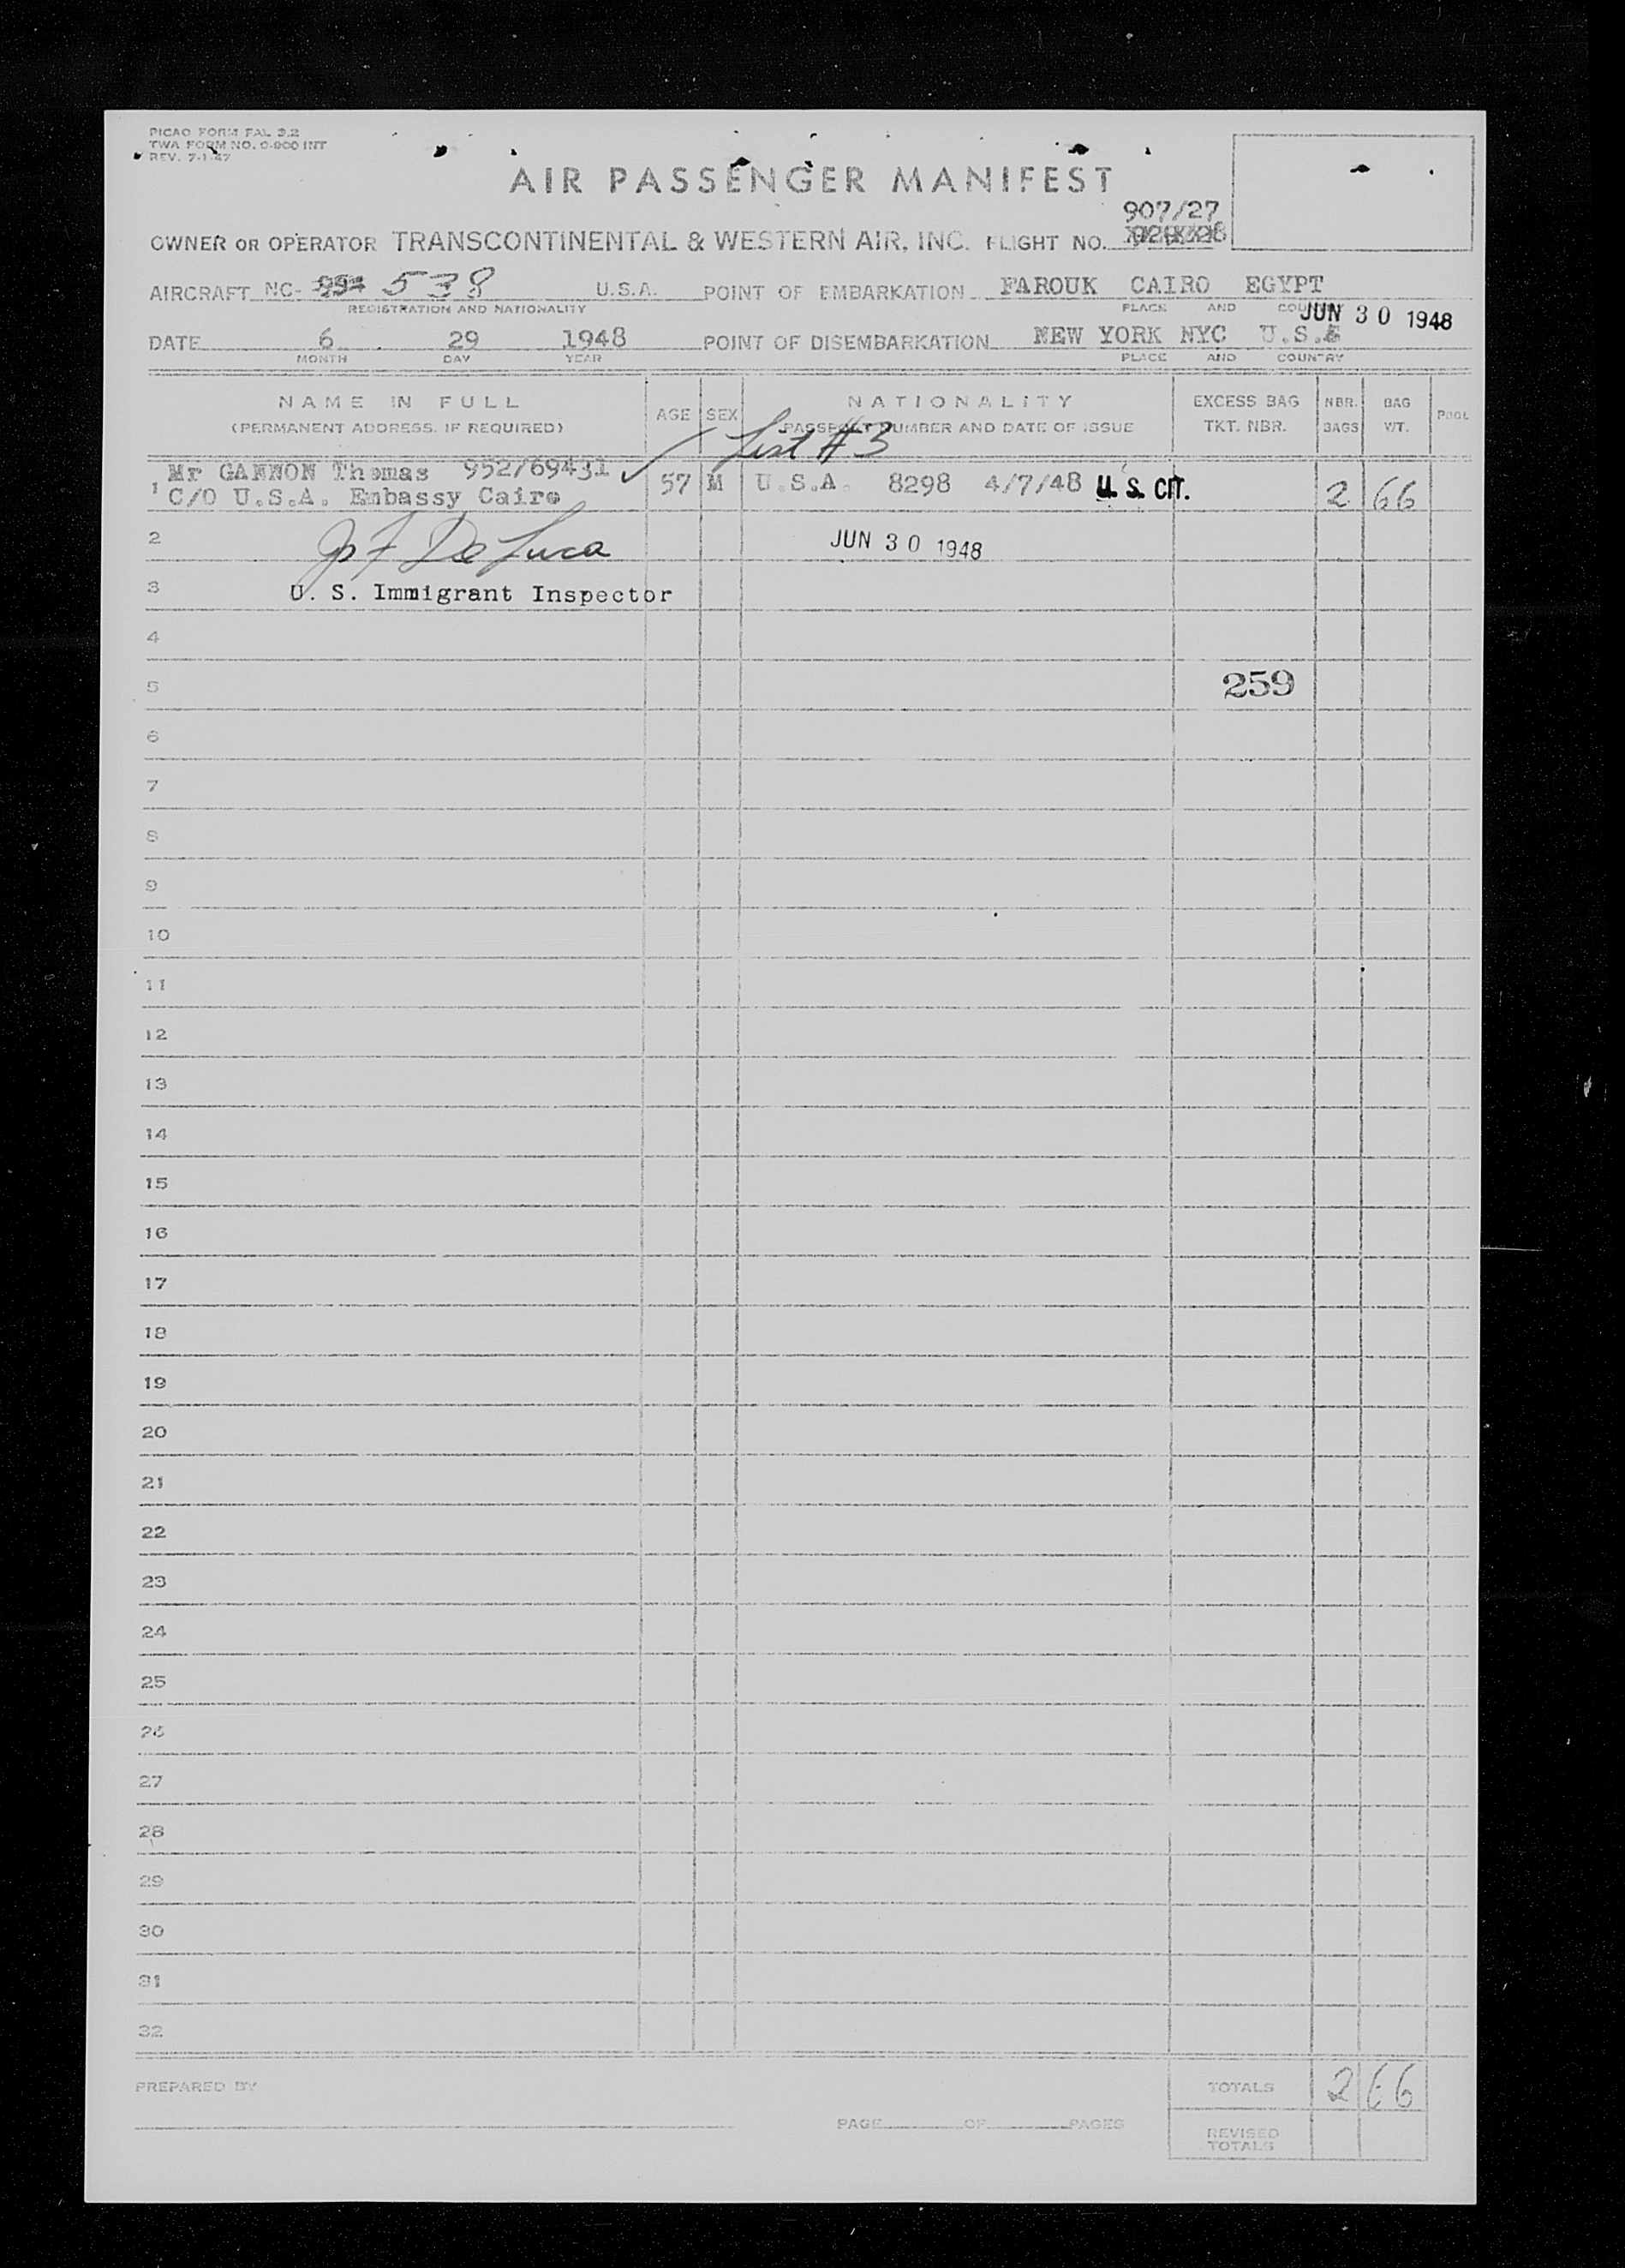 PICAO FORM FAL 3.2
TWA FORM NO. O-900 INT
REV. 7-1-47
AIR PASSENGER MANIFEST
907/27
OWNER OR OPERATOR TRANSCONTINENTAL & WESTERN AIR, INC. FLIGHT NO.
AIRCRAFT NC- 538 U.S.A. POINT OF EMBARKATION FAROUK CAIRO EGYPT
REGISTRATION AND NATIONALITY PLACE AND COUNTRY
JUN 30 1948
DATE 6 29 1948 POINT OF DISEMBARKATION NEW YORK NYC U.S.
MONTH DAY YEAR PLACE AND COUNTRY
NAME IN FULL AGE SEX NATIONALITY EXCESS BAG NBR. BAG POOL
(PERMANENT ADDRESS, IF REQUIRED) PASSPORT NUMBER AND DATE OF ISSUE TKT. NBR. BAGS WT.
List #3
Mr GANNON Thomas 952/69431
1 C/O U.S.A. Embassy Cairo 57 M U.S.A. 8298 4/7/48 U.S. CIT. 2 66
2 De Luca JUN 30 1948
3 U. S. Immigrant Inspector
4
5 259
6
7
8
9
10
11
12
13
14
15
16
17
18
19
20
21
22
23
24
25
26
27
28
29
30
31
32
PREPARED BY TOTALS 2 66
PAGE OF PAGES
REVISED
TOTALS